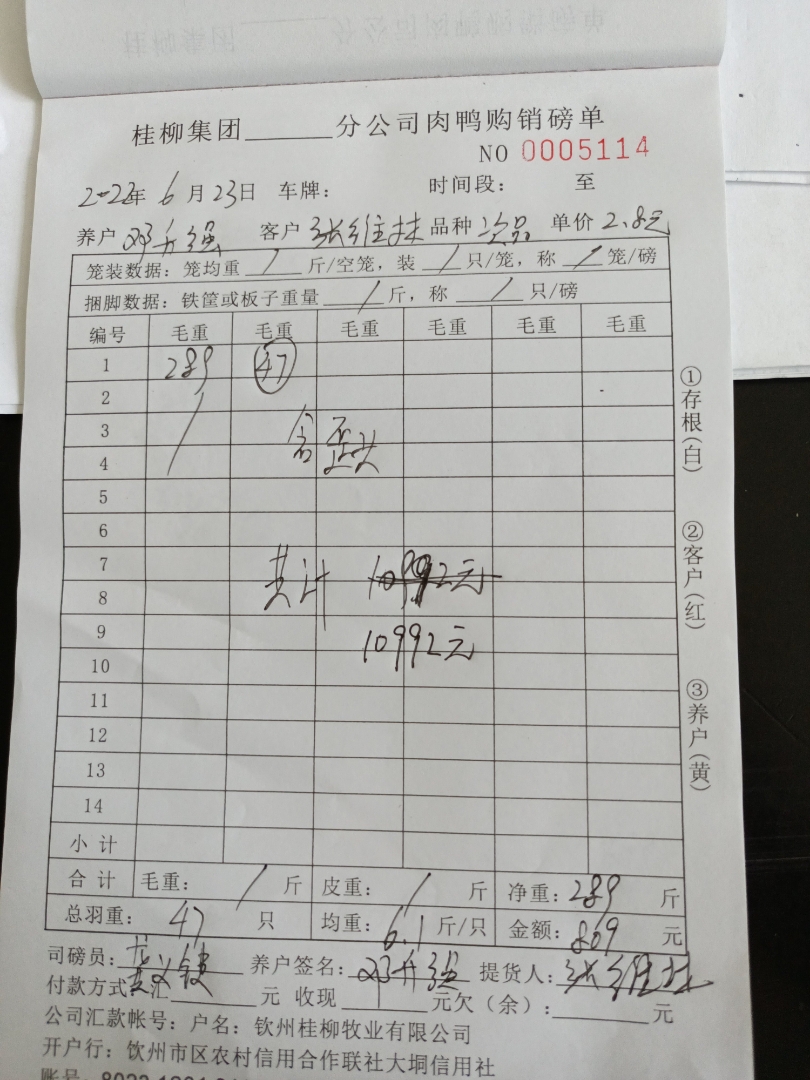 桂柳集团______分公司肉鸭购销磅单
NO 0005114
2022年6月23日 车牌: 时间段: 至
养户 邓升强 客户 张维扶 品种 次品 单价 2.8元
笼装数据: 笼均重 / 斤/空笼, 装 / 只/笼, 称 / 笼/磅
捆脚数据: 铁筐或板子重量 / 斤, 称 / 只/磅
编号 毛重 毛重 毛重 毛重 毛重 毛重
1 289 47
2
3 含歪头
4
5
6
7 共计 10992元
8
9 10992元
10
11
12
13
14
小计
合计 毛重: / 斤 皮重: / 斤 净重: 289 斤
总羽重: 47 只 均重: 6.1 斤/只 金额: 809 元
司磅员: 养户签名: 邓升强 提货人: 张维扶
付款方式 汇______元 收现______元欠(余):______元
公司汇款帐号: 户名: 钦州桂柳牧业有限公司
开户行: 钦州市区农村信用合作联社大垌信用社
账号:
①存根(白)
②客户(红)
③养户(黄)